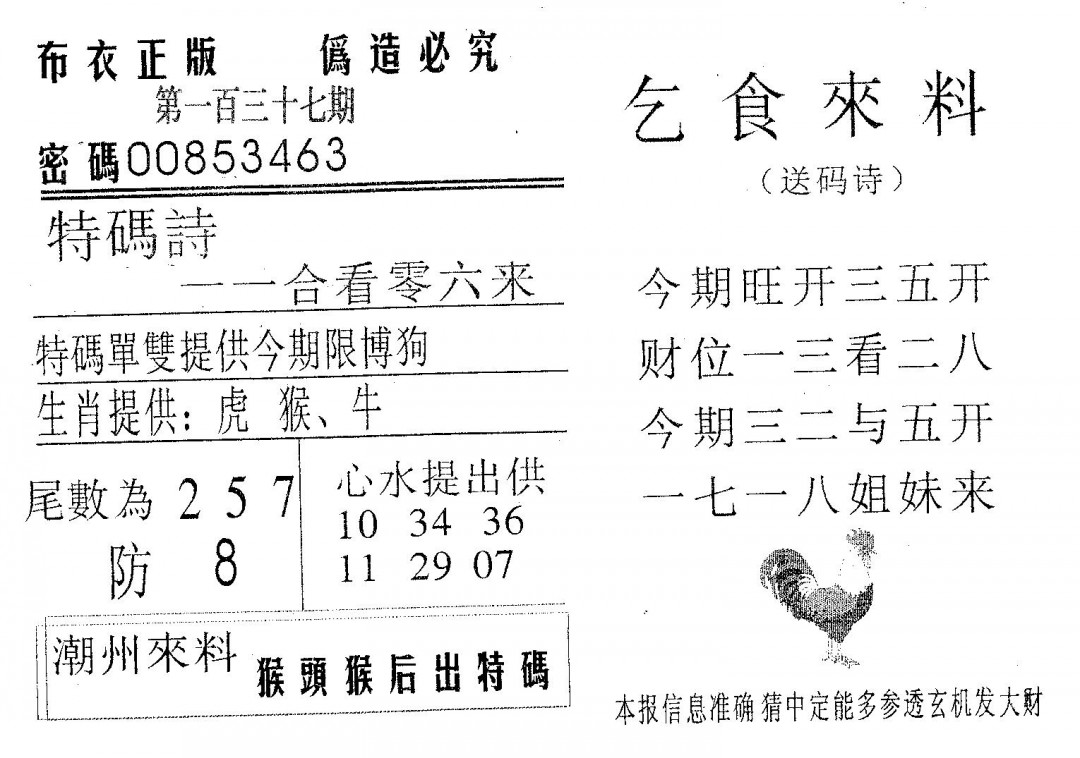 布衣正版 僞造必究
第一百三十七期
密碼00853463
特碼詩
一一合看零六来
特碼單雙提供今期限博狗
生肖提供：虎 猴、牛
尾數為 2 5 7
防 8
心水提出供
10 34 36
11 29 07
潮州來料 猴頭猴后出特碼
乞食來料
（送码诗）
今期旺开三五开
财位一三看二八
今期三二与五开
一七一八姐妹来
本报信息准确猜中定能多参透玄机发大财